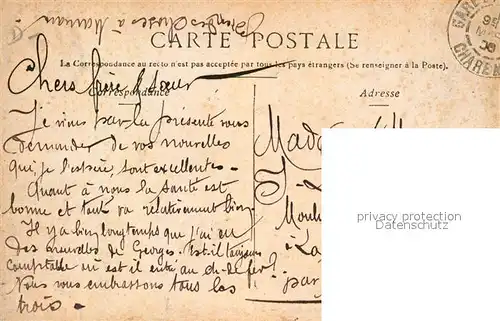 bonnes choses à Maman
CARTE POSTALE
La Correspondance au recto n'est pas acceptée par tous les pays étrangers (Se renseigner à la Poste).
Chers frère & soeur
Correspondance
Adresse
Je viens par la présente vous
demander de vos nouvelles
qui, je l'espère, sont excellentes.
Quant à nous la santé est
bonne et tout va relativement bien
Il y a bien longtemps que j'ai eu
des nouvelles de Georges. Est-il toujours
comptable ou est il entré au ch-de fer?
Nous vous embrassons tous les
trois.
Mada
Moul
à La
par
privacy protection
Datenschutz
CHAREN